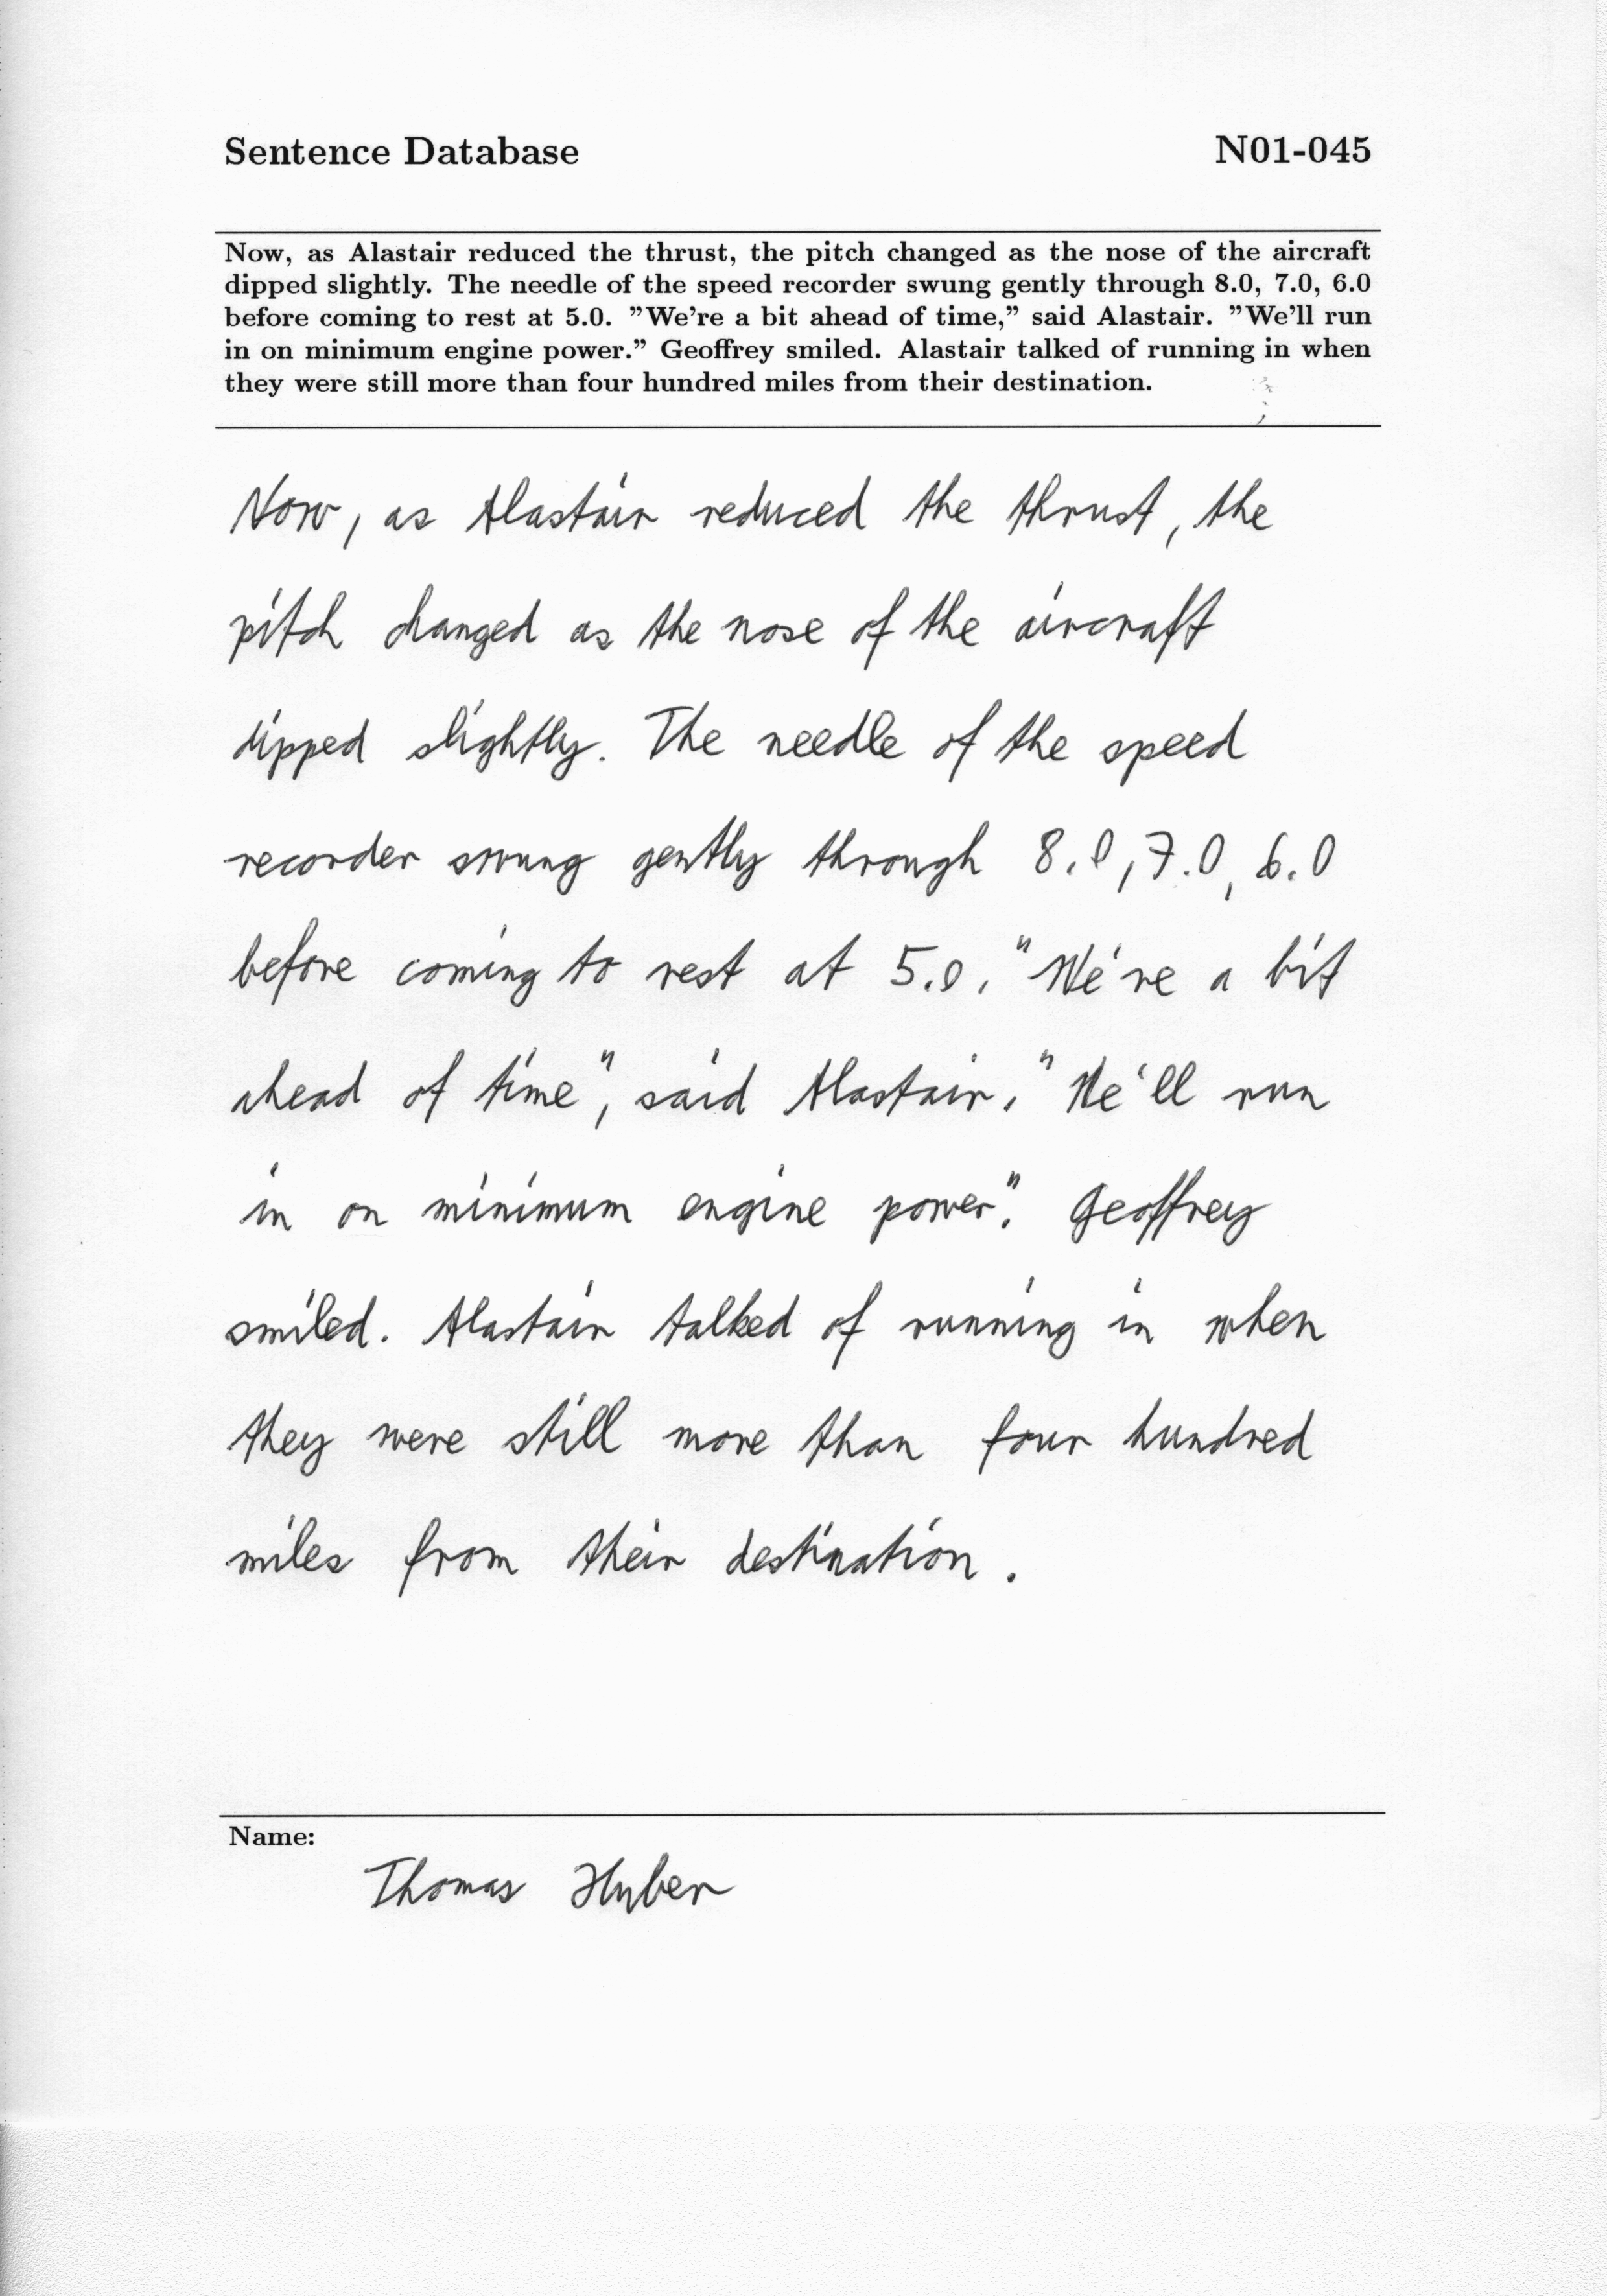 Sentence Database N01-045
Now, as Alastair reduced the thrust, the pitch changed as the nose of the aircraft
dipped slightly. The needle of the speed recorder swung gently through 8.0, 7.0, 6.0
before coming to rest at 5.0. "We're a bit ahead of time," said Alastair. "We'll run
in on minimum engine power." Geoffrey smiled. Alastair talked of running in when
they were still more than four hundred miles from their destination.
Now, as Alastair reduced the thrust, the
pitch changed as the nose of the aircraft
dipped slightly. The needle of the speed
recorder swung gently through 8.0, 7.0, 6.0
before coming to rest at 5.0. "We're a bit
ahead of time", said Alastair. "We'll run
in on minimum engine power". Geoffrey
smiled. Alastair talked of running in when
they were still more than four hundred
miles from their destination.
Name:
Thomas Huber